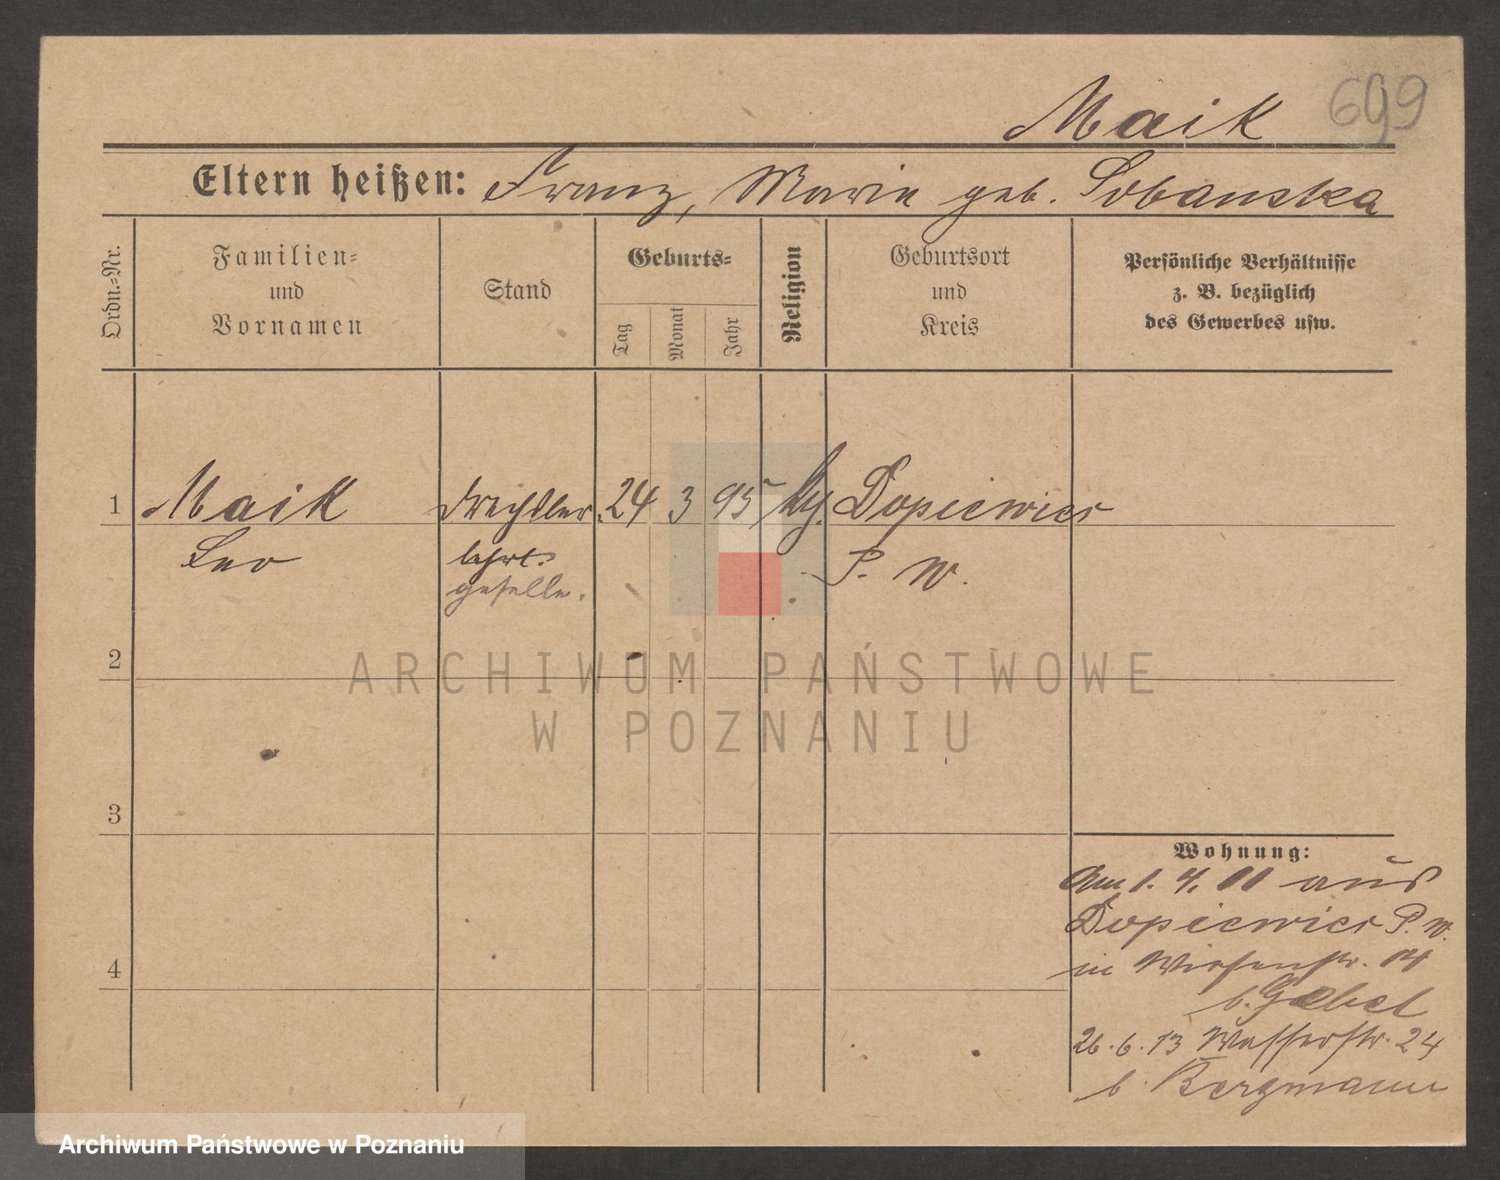 Maik
699
Eltern heißen: Franz, Marie geb. Sobanska
Ordn.-Nr.
Familien-
und
Vornamen
Stand
Geburts-
Tag
Monat
Jahr
Religion
Geburtsort
und
Kreis
Persönliche Verhältnisse
z. B. bezüglich
des Gewerbes usw.
1 Maik Drechsler 24 3 95 Dopiewiec
Leo lehrl. P. W.
geselle.
2
3
4
Wohnung:
Am 1. 4. 11 aus
Dopiewiec P. W.
in Wiesenstr. 14
b. Gebel
26. 6. 13 Wasserstr. 24
b. Bergmann
ARCHIWUM PAŃSTWOWE
W POZNANIU
Archiwum Państwowe w Poznaniu